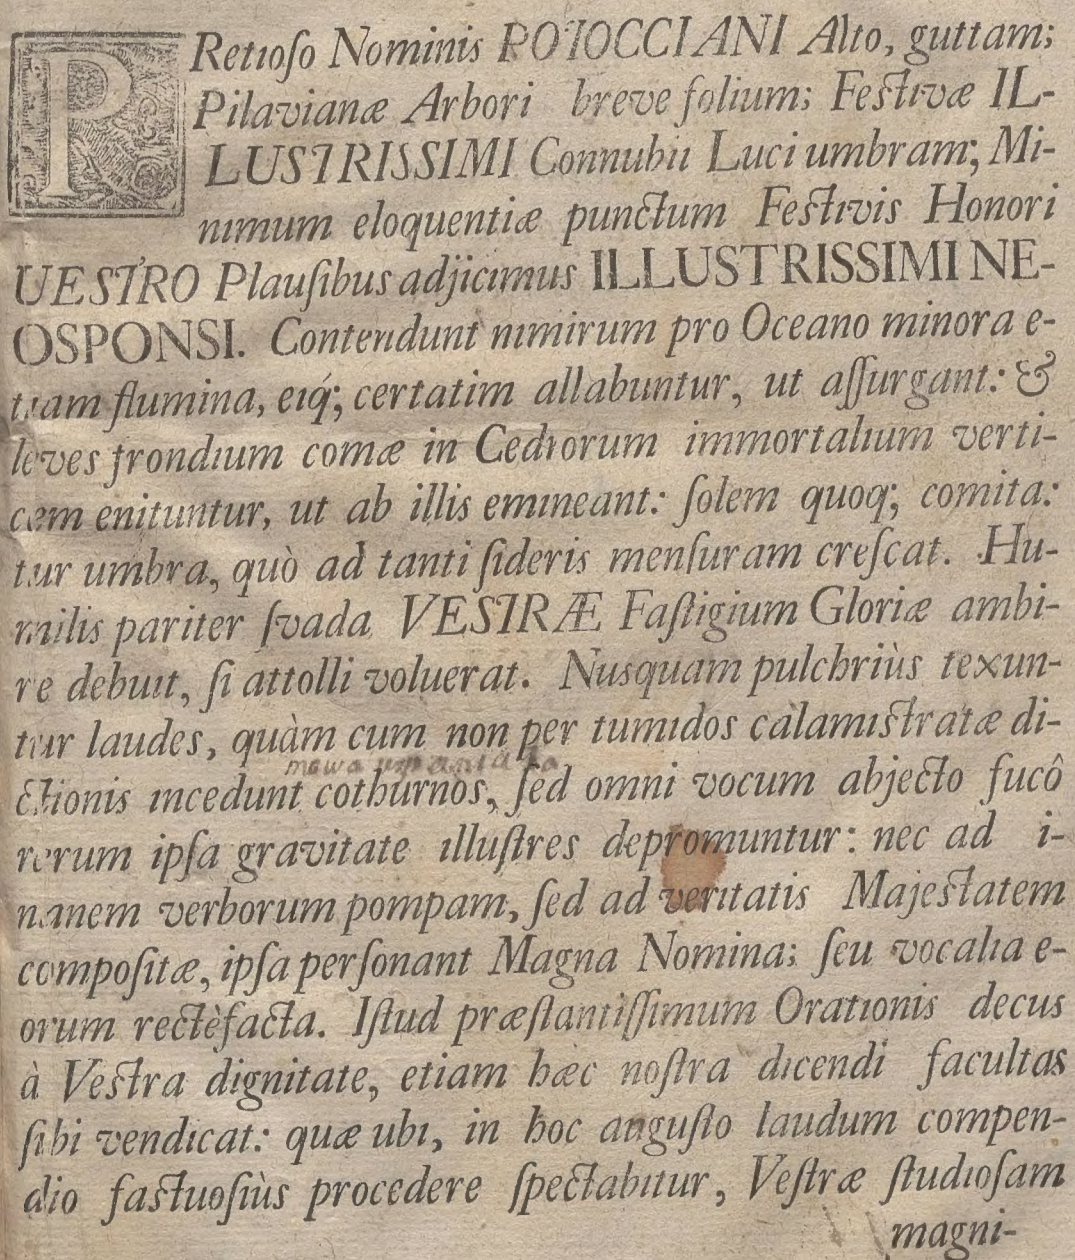 PRetioſo Nominis POTOCCIANI Alto, guttam;
Pilavianæ Arbori breve folium; Feſtivæ IL-
LUSTRISSIMI Connubii Luci umbram; Mi-
nimum eloquentiæ punctum Feſtivis Honori
UESTRO Plauſibus adjicimus ILLUSTRISSIMI NE-
OSPONSI. Contendunt nimirum pro Oceano minora e-
tiam flumina, eiq́; certatim allabuntur, ut aſſurgant: &
leves frondium comæ in Cedrorum immortalium verti-
cem enituntur, ut ab illis emineant: ſolem quoq; comita:
tur umbra, quò ad tanti ſideris menſuram creſcat. Hu-
milis pariter ſvada VESTRÆ Faſtigium Gloriæ ambi-
re debuit, ſi attolli voluerat. Nusquam pulchriùs texun-
tur laudes, quàm cum non per tumidos calamiſtratæ di-
ctionis incedunt cothurnos, ſed omni vocum abjecto fucô
rerum ipſa gravitate illuſtres depromuntur: nec ad i-
nanem verborum pompam, ſed ad veritatis Majeſtatem
compoſitæ, ipſa perſonant Magna Nomina; ſeu vocalia e-
orum rectèfacta. Iſtud præſtantiſſimum Orationis decus
à Veſtra dignitate, etiam hæc noſtra dicendi facultas
ſibi vendicat: quæ ubi, in hoc anguſto laudum compen-
dio faſtuoſiùs procedere ſpectabitur, Veſtræ ſtudioſam
magni-